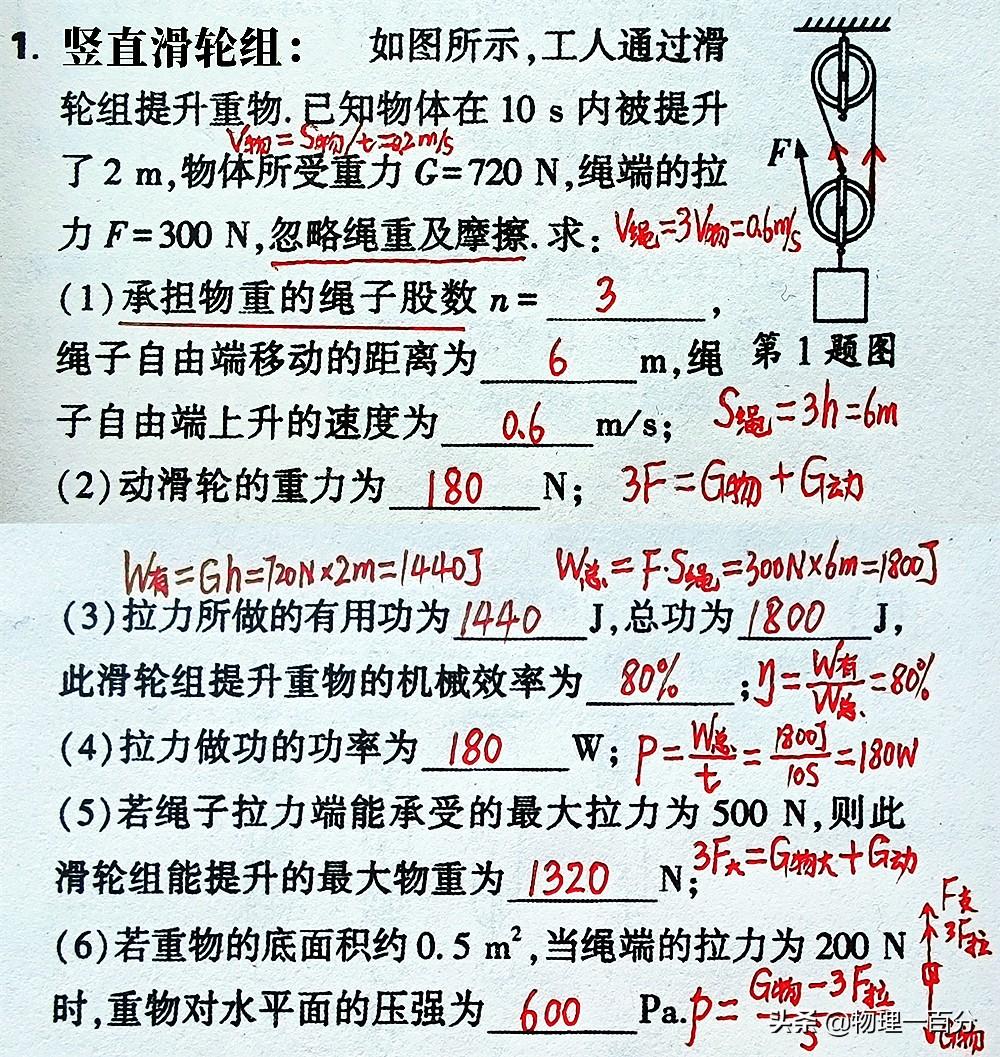 1. 竖直滑轮组： 如图所示,工人通过滑
轮组提升重物.已知物体在 10 s 内被提升
V物=S物/t=0.2m/s
了 2 m,物体所受重力 G=720 N,绳端的拉
F
力 F=300 N,忽略绳重及摩擦.求：
V绳=3V物=0.6m/s
(1)承担物重的绳子股数 n= 3 ,
绳子自由端移动的距离为 6 m,绳
第 1 题图
子自由端上升的速度为 0.6 m/s;
S绳=3h=6m
(2)动滑轮的重力为 180 N;
3F=G物+G动
W有=Gh=720N×2m=1440J
W总=F·S绳=300N×6m=1800J
(3)拉力所做的有用功为 1440 J,总功为 1800 J,
此滑轮组提升重物的机械效率为 80% ;
η=W有/W总=80%
(4)拉力做功的功率为 180 W;
P=W总/t=1800J/10s=180W
(5)若绳子拉力端能承受的最大拉力为 500 N,则此
滑轮组能提升的最大物重为 1320 N;
3F大=G物大+G动
F支
3F拉
(6)若重物的底面积约 0.5 m²,当绳端的拉力为 200 N
时,重物对水平面的压强为 600 Pa.
p=G物-3F拉/S
G物
头条 @物理一百分